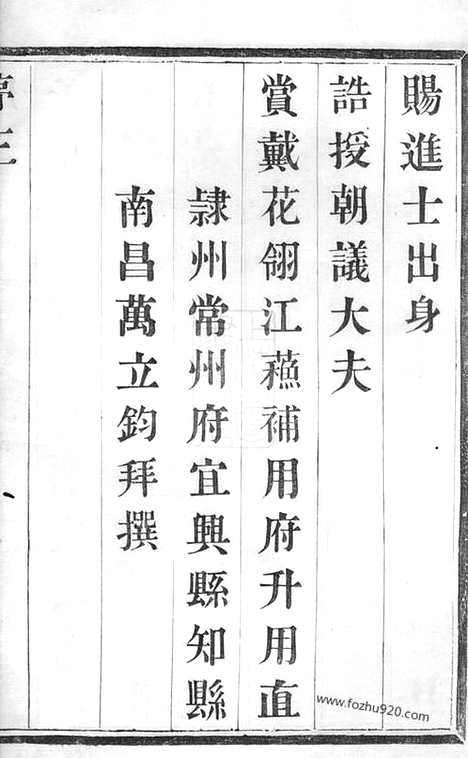 賜進士出身
誥授朝議大夫
賞戴花翎江蘓補用府升用直
隷州常州府宜興縣知縣
南昌萬立鈞拜撰
www.fozhu920.com